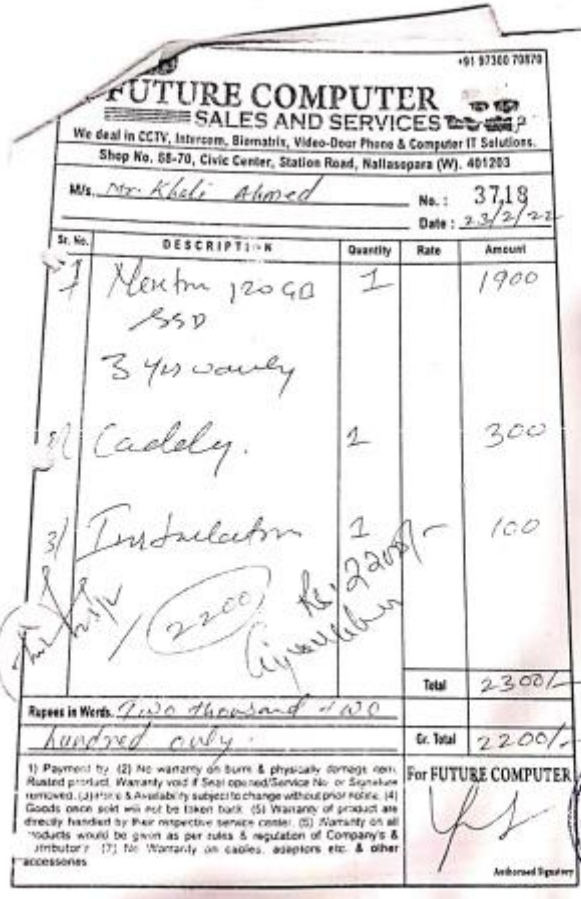 +91 97300 70870
FUTURE COMPUTER
SALES AND SERVICES
We deal in CCTV, Intercom, Biomatrix, Video-Door Phone & Computer IT Solutions.
Shop No. 68-70, Civic Center, Station Road, Nallasopara (W). 401203
M/s. Mr. Khali Ahmed
No. : 3718
Date : 23/2/22
Sr. No. DESCRIPTION Quantity Rate Amount
1 120 GB 1 1900
SSD
3 yrs
2/ Caddy. 1 300
3/ 1 100
Rs. 2200/-
2200
Total 2300/-
Rupees in Words. Two thousand two
hundred only.
Gr. Total 2200/-
1) Payment by (2) No warranty on burn & physically damage item,
Rusted product, Warranty void if Seal opened/Service No. or Signature
removed. (3) Price & Availability subject to change without prior notice. (4)
Goods once sold will not be taken back. (5) Warranty of product are
directly handled by their respective service center. (6) Warranty on all
products would be given as per rules & regulation of Company's &
(7) No Warranty on cables, adaptors etc. & other
accessories
For FUTURE COMPUTER
Authorised Signatory